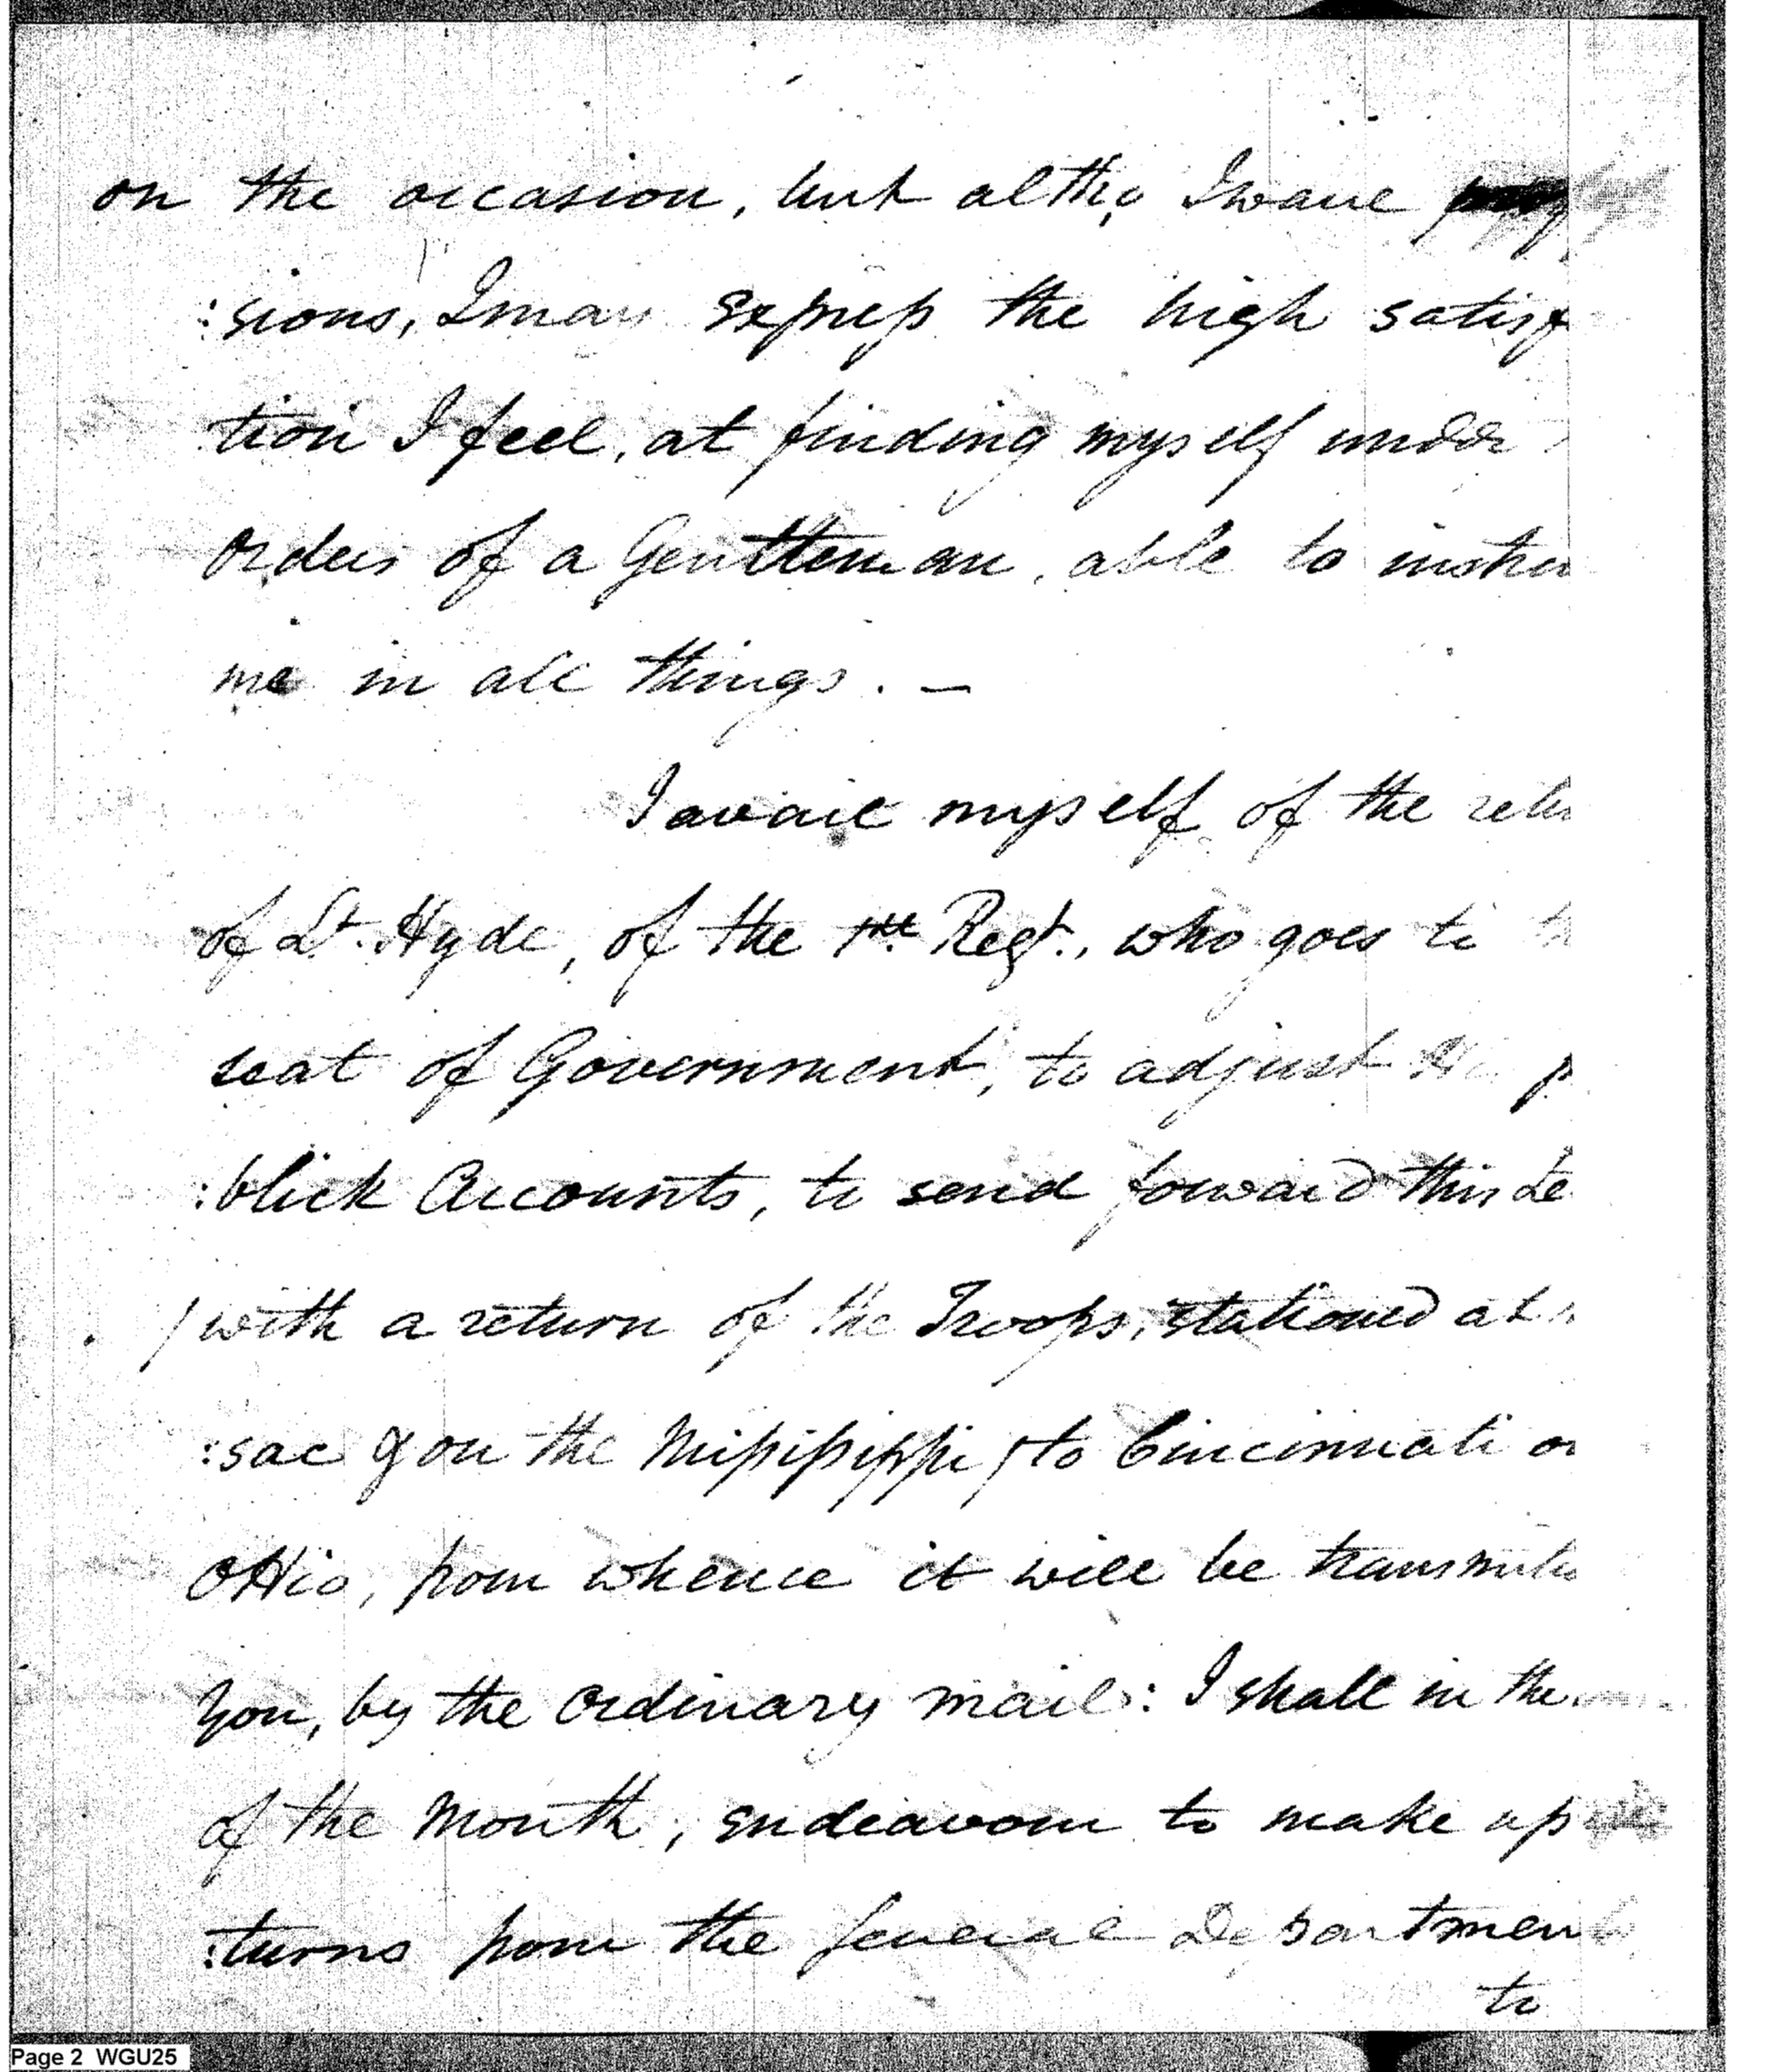 on the occasion, but altho I wave
:sions, I may express the high satisf
tion I feel, at finding myself under
Orders of a Gentleman, able to instru
me in all things. —
I avail myself of the retu
of Lt. Hyde, of the 1st Regt., who goes to th
seat of Government, to adjust his p
:blick Accounts, to send forward this Le
/ with a return of the Troops, stationed at
:sac & on the Mississippi / to Cincinnati on
Ohio, from whence it will be transmitte
You, by the Ordinary mail: I shall in the
of the Month, endeavour to make up
:turns from the several Department
to
Page 2 WGU25